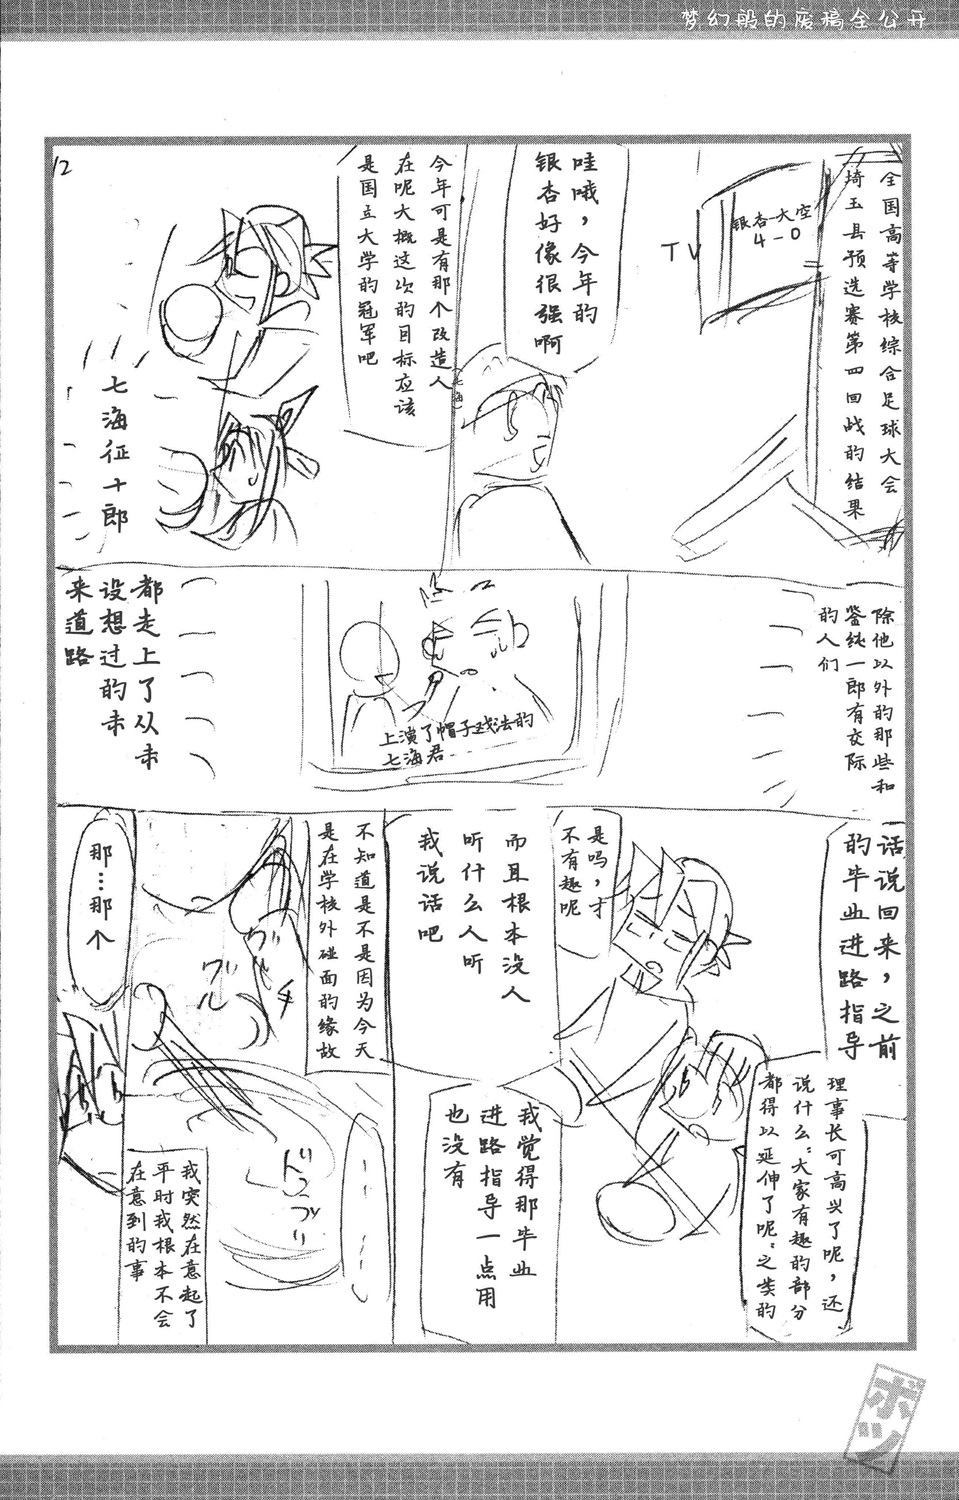 梦幻般的废稿全公开
12
全国高等学校综合足球大会
埼玉县预选赛第四回战的结果
银杏-大空
4-0
TV
哇哦,今年的
银杏好像很强啊
今年可是有那个改造人
在呢大概这次的目标应该
是国立大学的冠军吧
七海征十郎
除他以外的那些和
誉纯一郎有交际
的人们
上演了帽子戏法的
七海君
都走上了从未
设想过的未
来道路
话说回来,之前
的毕业进路指导
理事长可高兴了呢,还
说什么“大家有趣的部分
都得以延伸了呢”之类的
是吗,才
不有趣呢
而且根本没人
听什么人听
我说话吧
我觉得那毕业
进路指导一点用
也没有
不知道是不是因为今天
是在学校外碰面的缘故
グル
グル
那…那个
我突然在意起了
平时我根本不会
在意到的事
ボツ